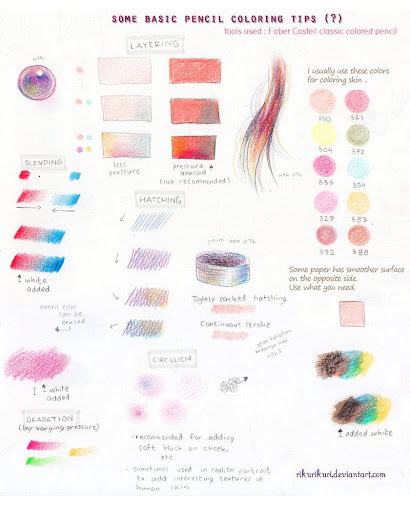 SOME BASIC PENCIL COLORING TIPS (?)
tools used : Faber Castell classic colored pencil
LAYERING
I usually use these colors
for coloring skin .
330
321
304
372
333
354
329
383
392
388
less
pressure
pressure
added
(not recommended)
BLENDING
↑ white
added
pencil color
can be
erased
HATCHING
Tightly packed hatching
Continuous stroke
Some paper has smoother surface
on the opposite side.
Use what you need.
↑ white
added
CIRCULISM
GRADATION
(by varying pressure)
- recommended for adding
soft blush on cheek,
etc.
- sometimes used in realism portrait
to add interesting textures of
human skin.
↑ added white
rikurikuri.deviantart.com